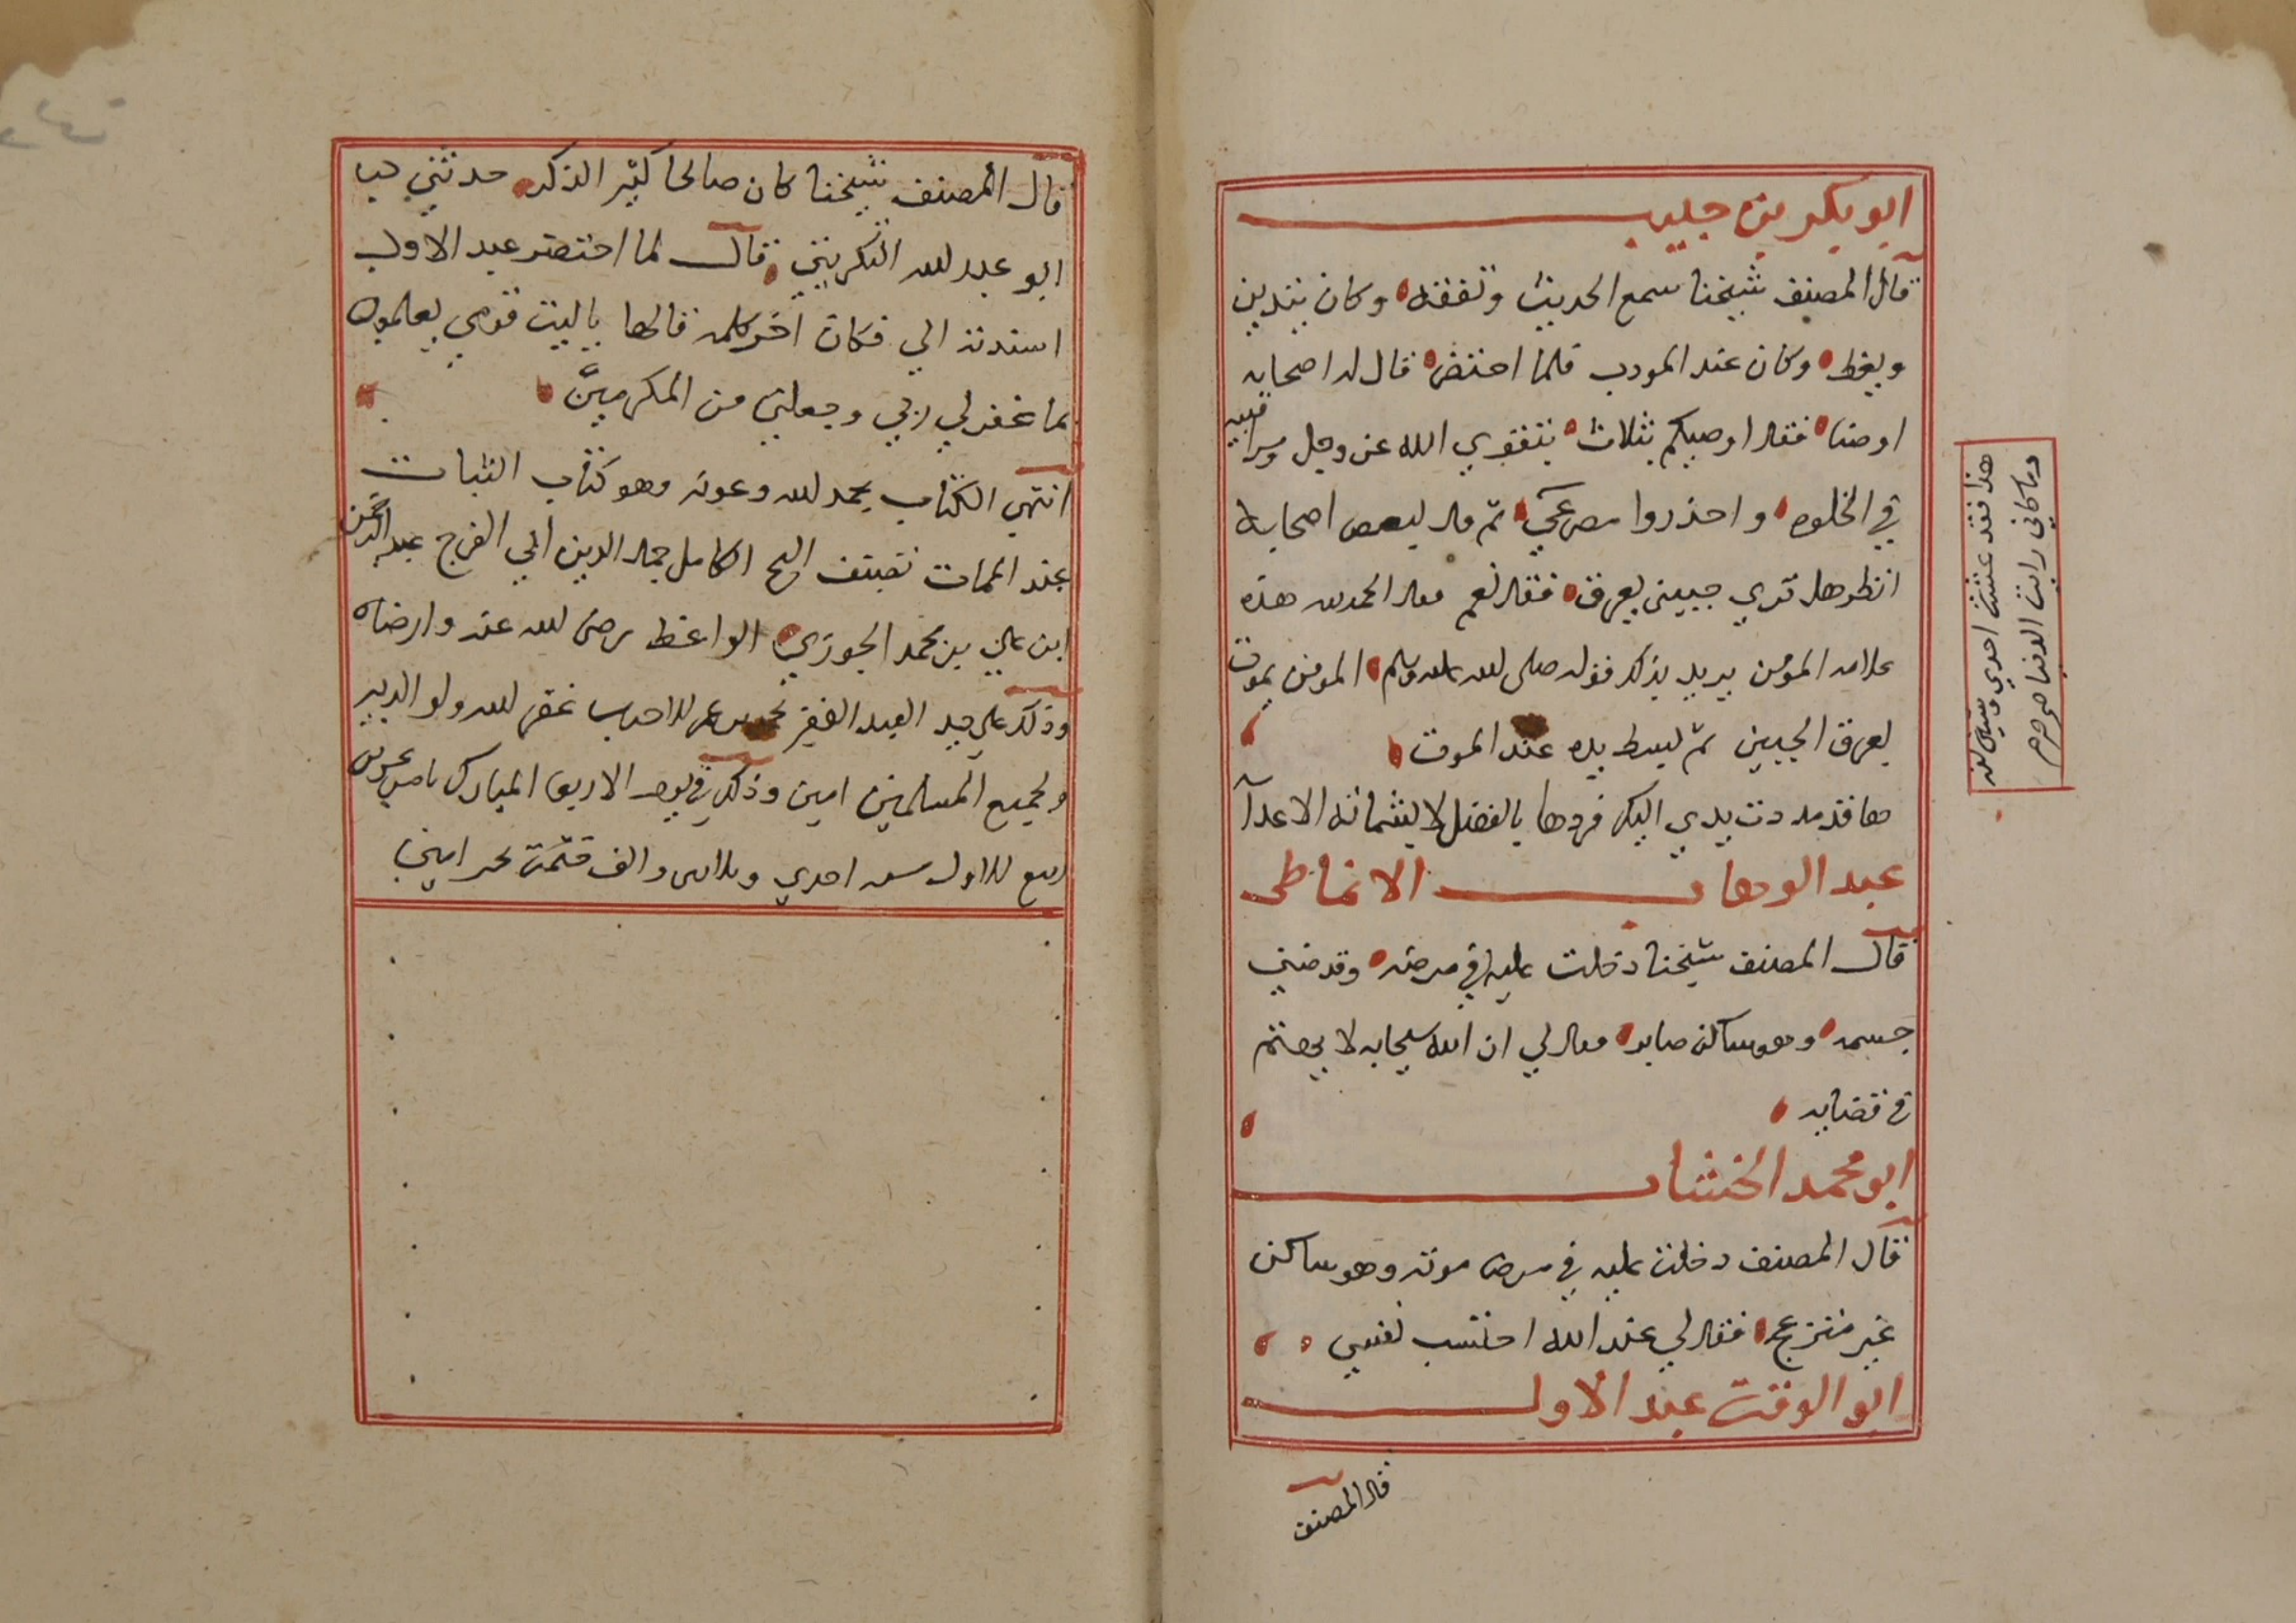 ابو بكر بن حبيب
قال المصنف شيخنا سمع الحديث وتفقه وكان يتدين
ويعظ وكان عند المودب فلما احتضر قال له اصحابه
اوصنا فقال اوصيكم بثلاث بتقوي الله عز وجل ومراقبته
في الخلوه واحذروا مصرعي ثم قال لبعض اصحابه
انظر هل تري جبيني يعرق فقال نعم فقال الحمد لله هذه
علامه المؤمن يريد بذلك قوله صلى الله عليه وسلم المومن يموت
بعرق الجبين ثم لبسط يده عند الموت
ها قد مددت يدي اليك فردها بالفضل لا بشماتة الاعدآ
عبد الوهاب الانماطى
قال المصنف شيخنا دخلت عليه في مرضه وقد ضني
جسمه وهو ساكن صابر فقال لي ان الله سبحانه لا يتهم
في قضايه
ابو محمد الخشاب
قال المصنف دخلت عليه في مرض موته وهو ساكن
غير منزعج فقال لي عند الله احتسب نفسي
ابو الوقت عبد الاول
قال المصنف
هذا فقد عشت احدي وستين سنه
وما كاني رايت الدنيا
قال المصنف شيخنا كان صالحا كثير الذكر حدثني
ابو عبد الله التكريتي قال لما احتضر عبد الاول
اسندته الي فكان اخر كلمه قالها ياليت قومي يعلمون
بما غفر لي ربي وجعلني من المكرمين
انتهي الكتاب بحمد الله وعونه وهو كتاب الثبات
عند الممات تصنيف الشيخ الكامل جمال الدين ابي الفرج عبد الرحمن
ابن علي بن محمد الجوزي الواعظ رضى الله عنه وارضاه
وذلك علي يد العبد الفقير غفر الله ولوالديه
ولجميع المسلمين امين وذلك في يوم الاربعا المبارك
ربيع الاول سنه احدي وثلاثين والف ختمت بخير امين